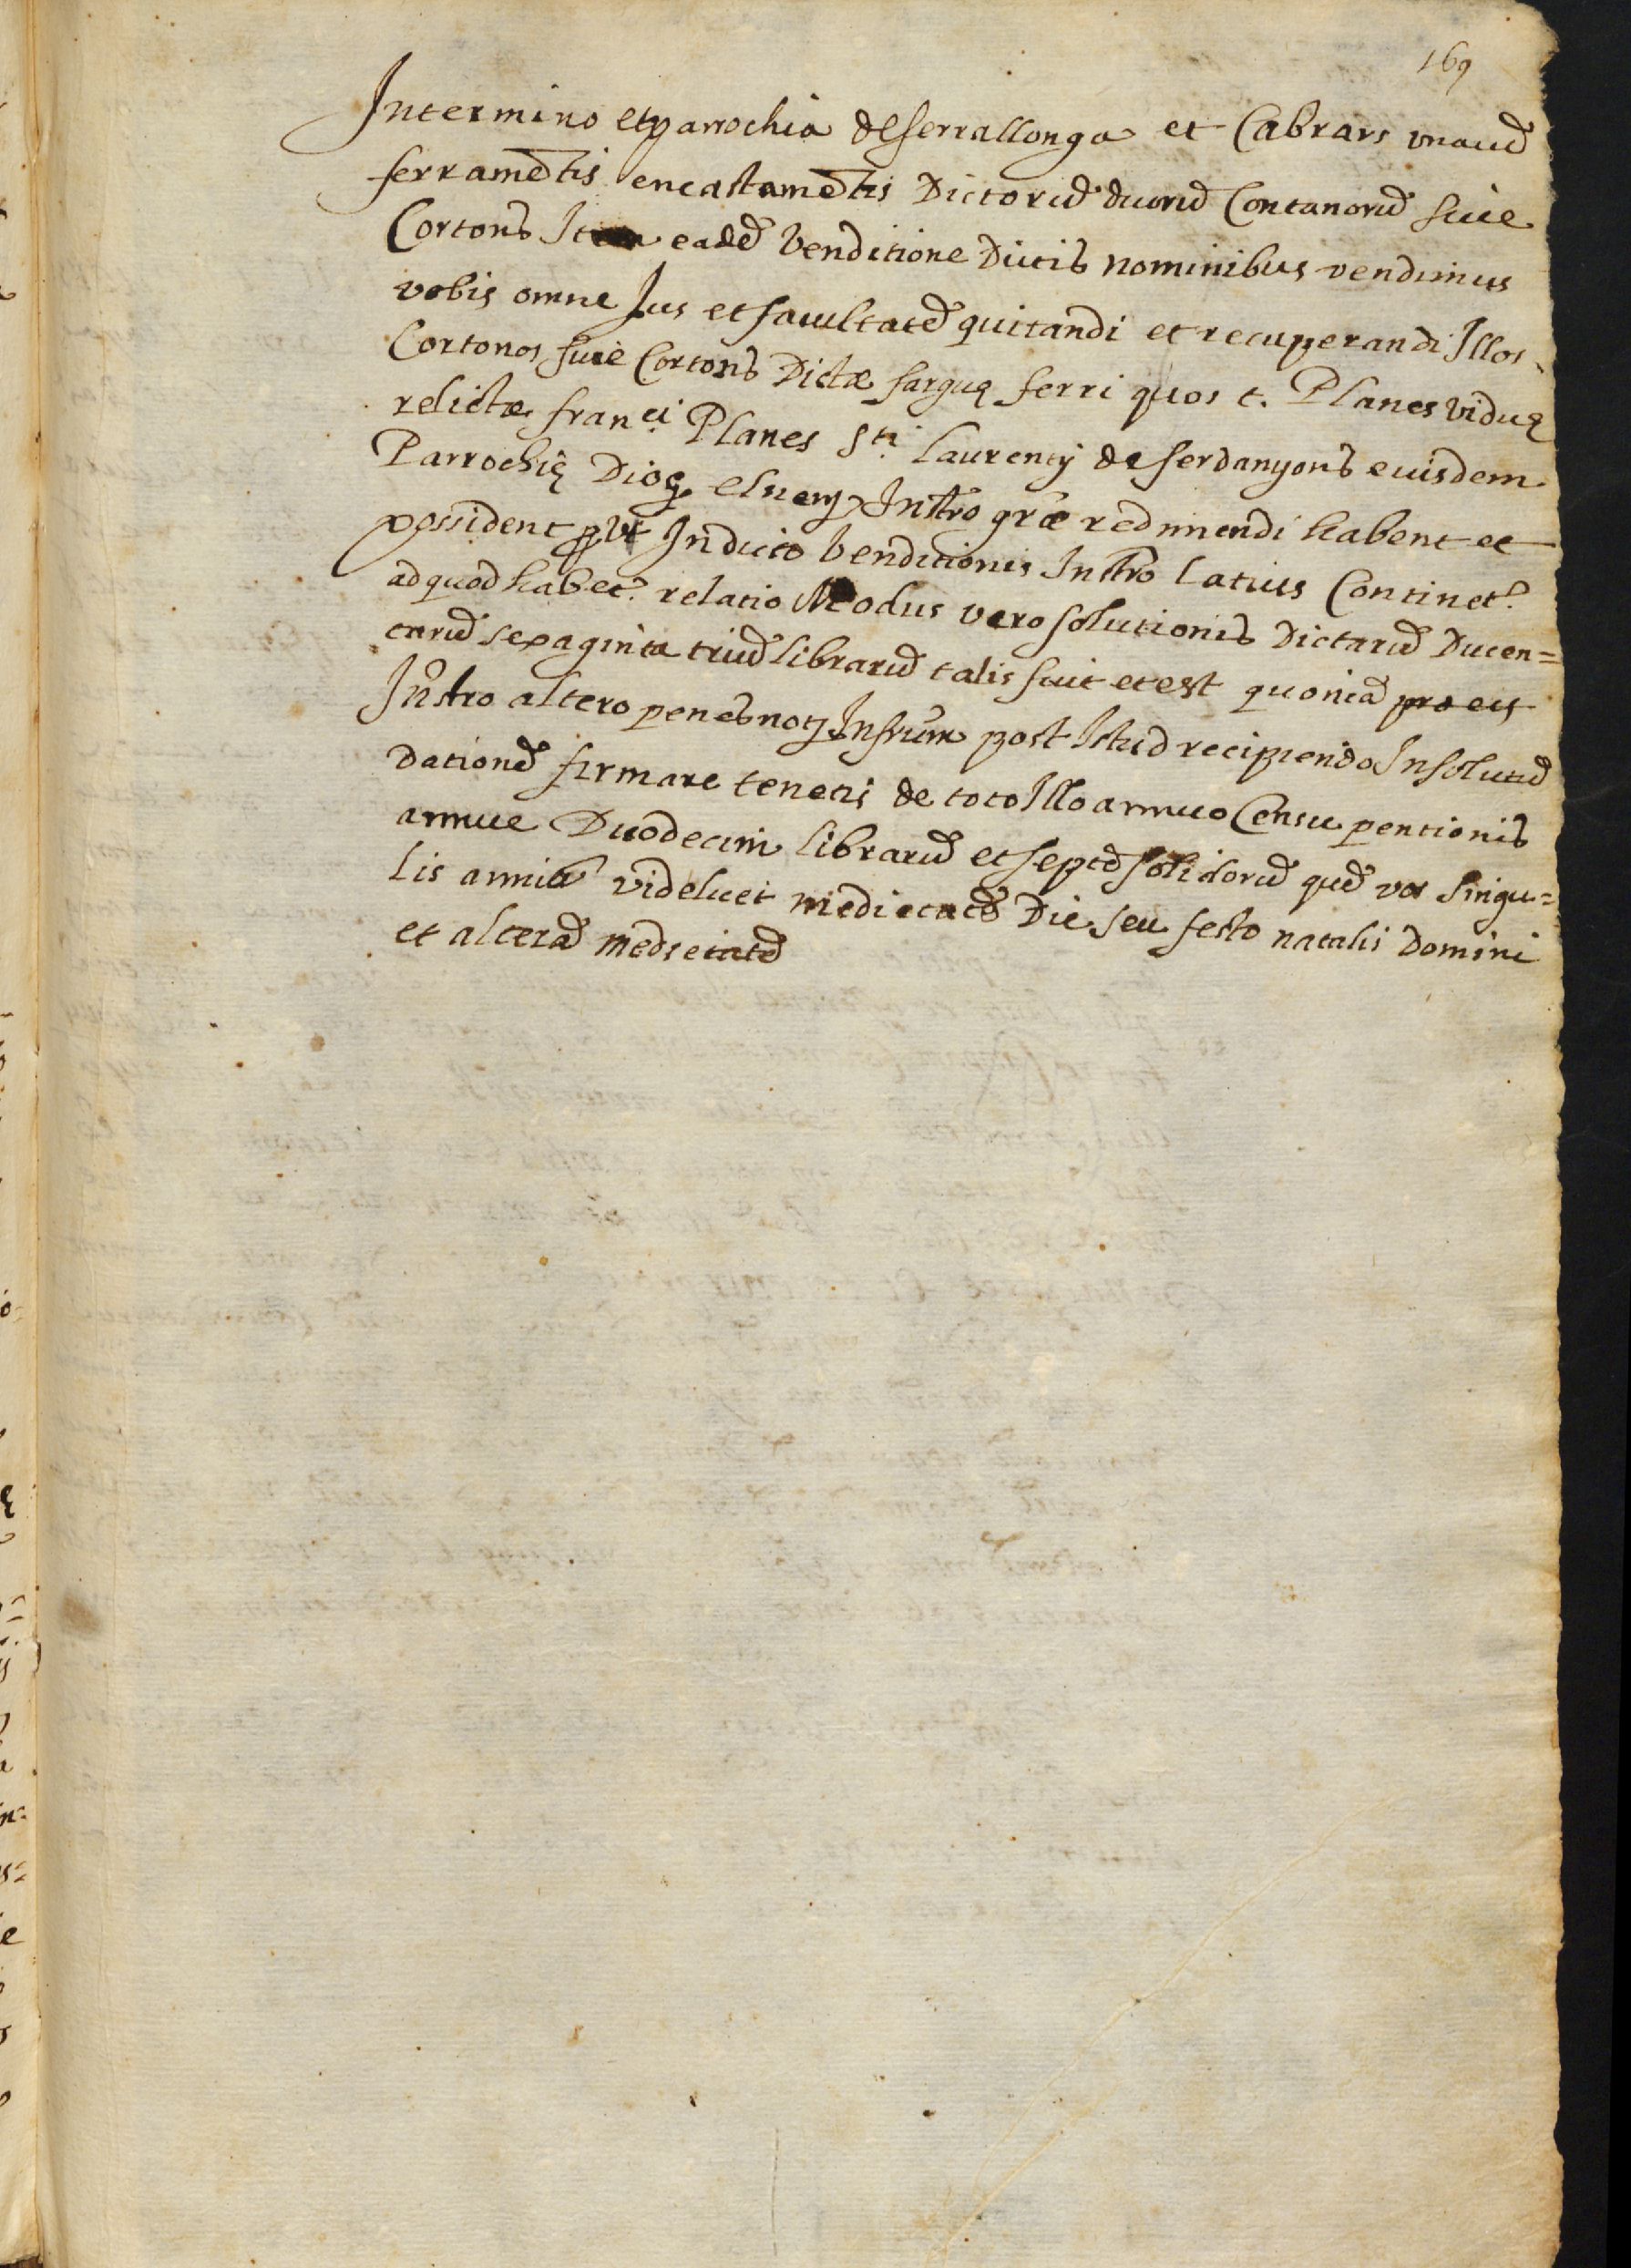 169
Intermino et parrochia de serrallonga et Cabrars unacũ
ferramẽtis encastamẽtis Dictorũ duorũ Contanorũ sive
Cortons Item eadẽ venditione Dictis nominibus vendimus
vobis omne Jus et facultatẽ quitandi et recuperandi Illos
Cortonos sive Cortons Dictæ farguę ferri quos t. Planes viduę
relictæ franci Planes Sti Laurentij de serdanyons euisdem
Parrochię Dioę elnen Instro græ redimendi habent et
possident prvt In dicto venditionis Instro latius Continetr
ad quod habetr relatio Modus vero solutionis Dictarũ Ducen=
tarũ sexaginta triũ librarũ talis fuit et est quoniã pro eis
Instro altero penes notj Infrum post Istud recipiendo Insolutũ
Dationẽ firmare teneris de toto Illo annuo Censu pentionis
annue Duodecim librarũ et septẽ solidorũ quẽ vos singu=
lis annis videlicet medietatẽ Die seu festo natalis Domini
et alterã medietatẽ